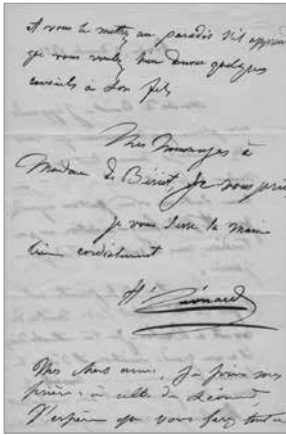 et vous le mettez au paradis s'il apprend
que vous voulez bien donner quelques
conseils à son fils
Mes hommages à
Madame de Bériot, je vous prie
je vous serre la main
bien cordialement
Hi Léonard
Mes chers amis, je joins mes
prières à celles de Léonard,
J'espère que vous ferez tout